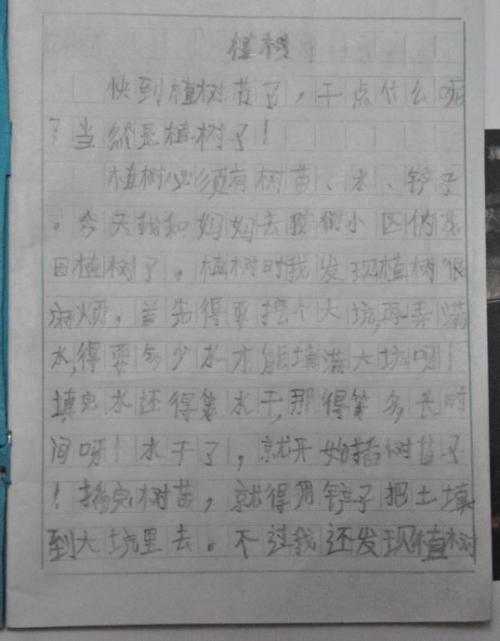 植树
快到植树节了，干点什么呢
？当然是植树了！
植树必须有树苗、水、铲子
。今天我和妈妈去我们小区的花
园植树了，植树时我发现植树很
麻烦，首先得要挖个大坑，再弄满
水，得要多少水才能填满大坑呀！
填完水还得等水干，那得等多长时
间呀！水干了，就开始插树苗了
！插完树苗，就得用铲子把土填
到大坑里去。不过我还发现植树